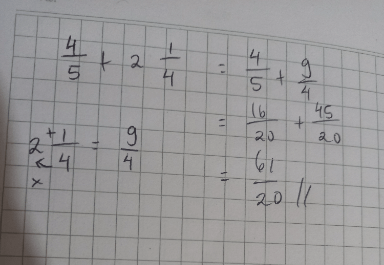 4/5 + 2 1/4 = 4/5 + 9/4
= 16/20 + 45/20
2 + 1/4 = 9/4
x
= 61/20 //